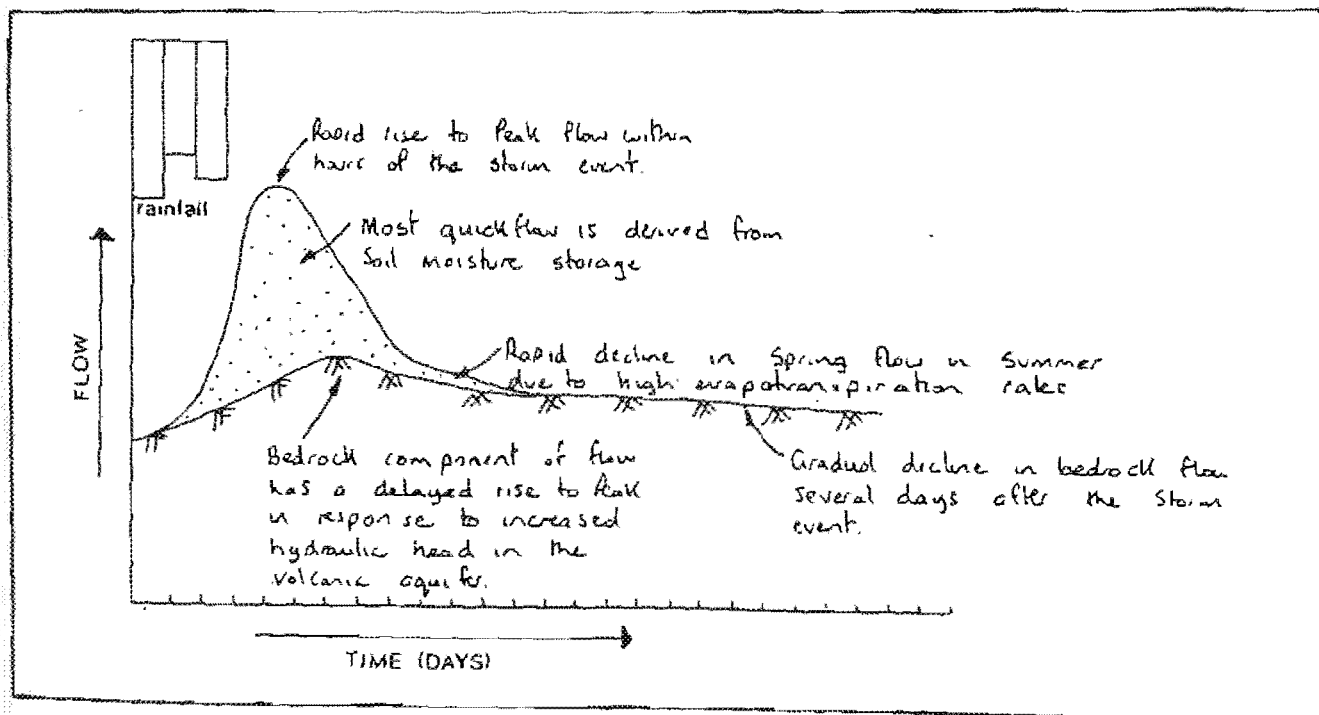 Rapid rise to Peak flow within
hours of the storm event.
rainfall
Most quickflow is derived from
Soil moisture storage
FLOW
Rapid decline in Spring flow in Summer
due to high evapotranspiration rates
Bedrock component of flow
has a delayed rise to Peak
in response to increased
hydraulic head in the
volcanic aquifer.
Gradual decline in bedrock flow
several days after the Storm
event.
TIME (DAYS)